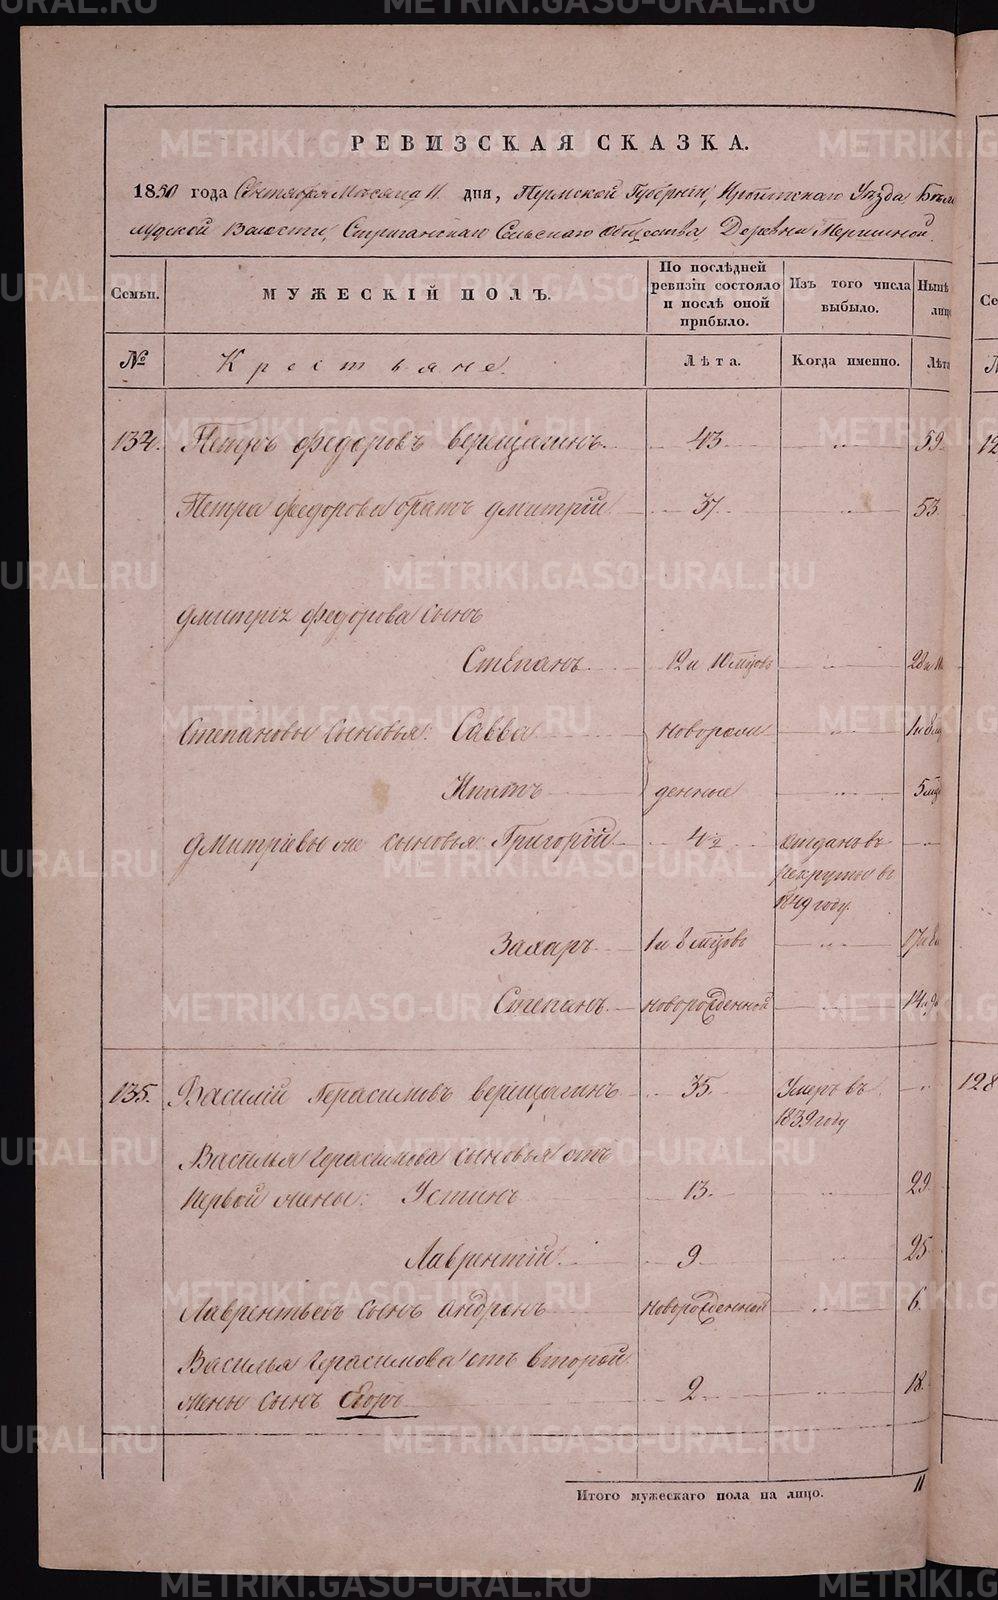 РЕВИЗСКАЯ СКАЗКА.
1850 года Сентября Месяца 11 дня, Пермской Губернїи, Ирбитскаго Уѣзда Бѣло
лудской Волости, Стриганскаго Сельскаго Общества, Деревни Першиной.
Семьи. МУЖЕСКІЙ ПОЛЪ. По послѣдней ревизіи состояло и послѣ оной прибыло. Изъ того числа выбыло. Нынѣ лицо
№ Крестьяне. Лѣта. Когда именно. Лѣта
134. Петръ Федоровъ Верещагинъ 43 59
Петра Федорова братъ Дмитрїй 37 53
Дмитрїя Федорова сынъ
Степанъ 12 и 10 мцовъ 28 и 10
Степановы сыновья: Савва новорож 1 и 8 мц
Ипатъ денные 5 мцо
Дмитрїевы же сыновья: Григорїй 4½ отданъ въ
рекруты въ
1849 году.
Захаръ 1 и 8 мцовъ 17 и 8
Степанъ новорожденной 14 и 9
135. Василїй Герасимовъ Верещагинъ 35 Умеръ въ
1839 году
Василья Герасимова сыновья отъ
первой жены: Устинъ 13. 29
Лаврентїй 9 25
Лаврентьевъ сынъ Андреянъ новорожденной 6.
Василья Герасимова отъ второй
жены сынъ Егоръ 2 18.
Итого мужескаго пола на лицо. 11
12
128
Се
METRIKI.GASO-URAL.RU